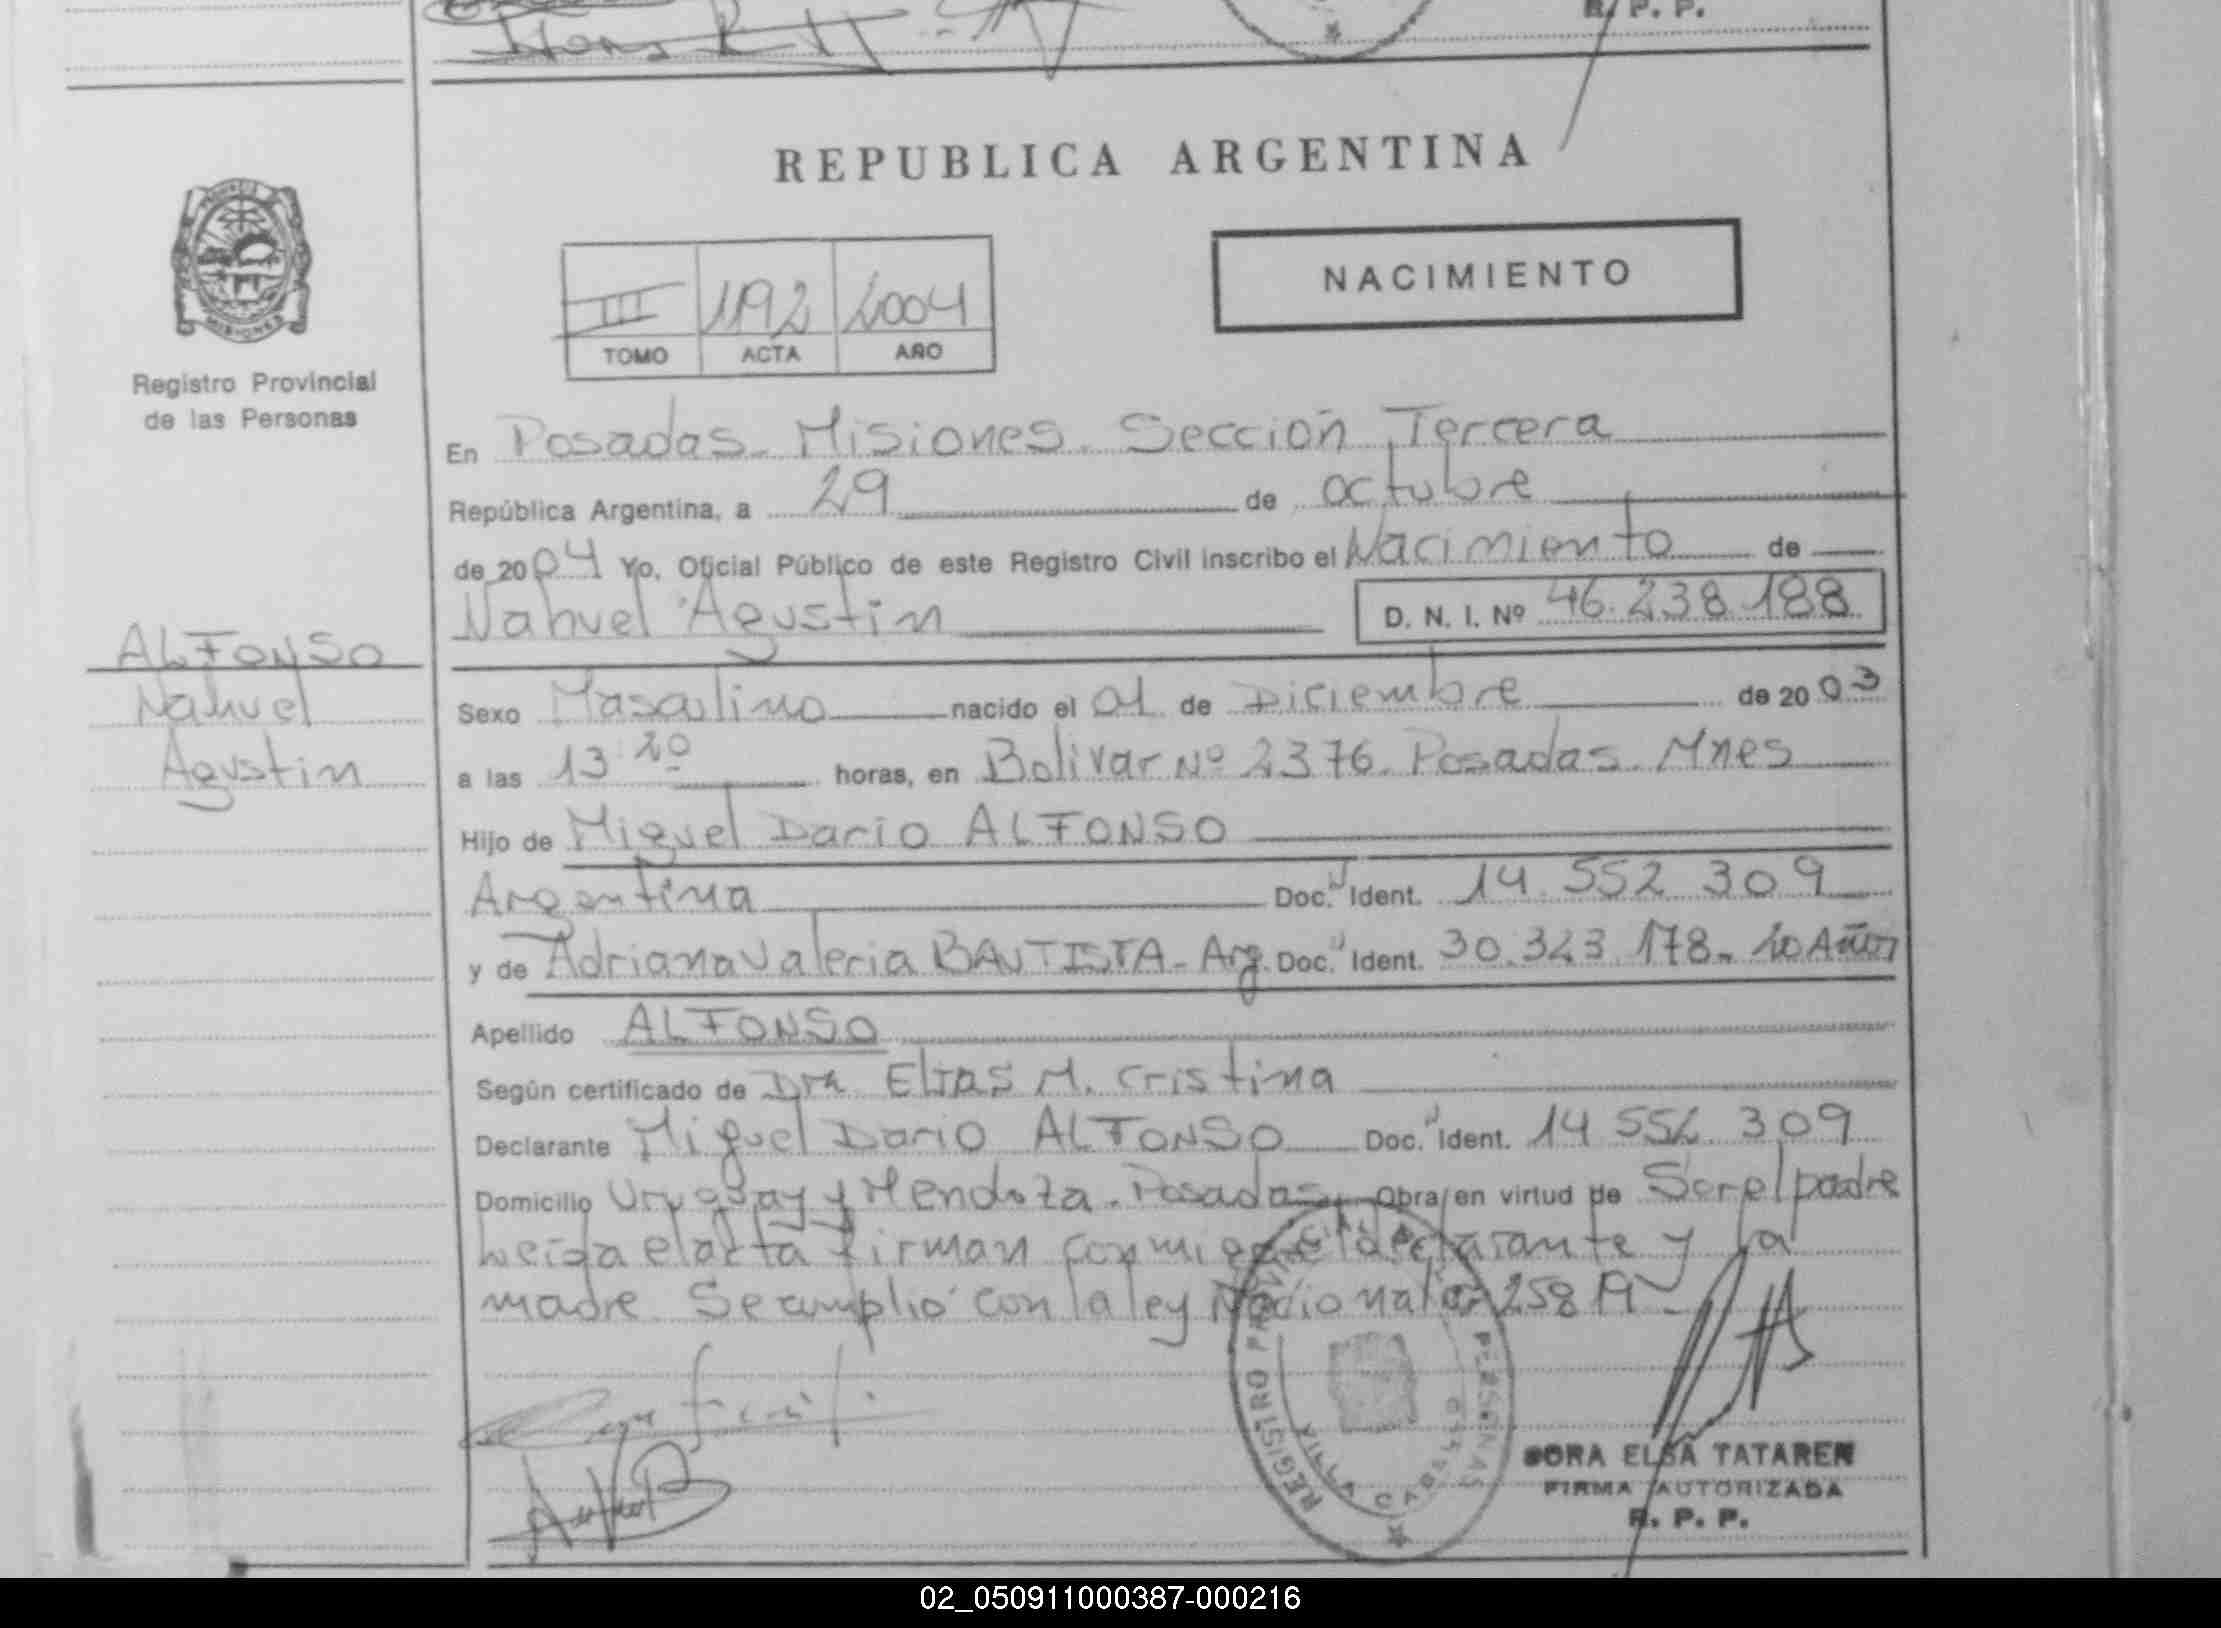 R. P. P.
REPUBLICA ARGENTINA
NACIMIENTO
III 1192 2004
TOMO ACTA AÑO
MISIONES
Registro Provincial
de las Personas
En Posadas - Misiones - Sección Tercera
República Argentina, a 29 de octubre
de 2004 Yo, Oficial Público de este Registro Civil inscribo el Nacimiento de
Nahuel Agustin D. N. I. Nº 46.238.188
ALFONSO
Nahuel
Agustin
Sexo Masculino nacido el 01 de Diciembre de 2003
a las 13:20 horas, en Bolivar Nº 2376. Posadas. Mnes
Hijo de Miguel Dario ALFONSO
Argentina Doc. Ident. 14.552.309
y de Adriana Valeria BAUTISTA - Arg. Doc. Ident. 30.323.178 - 20 Años
Apellido ALFONSO
Según certificado de Dra ELIAS M. Cristina
Declarante Miguel Dario ALFONSO Doc. Ident. 14.552.309
Domicilio Uruguay y Mendoza. Posadas Obra en virtud de Ser el padre
Leida el acta firman conmigo el declarante y la
madre. Se cumplió con la ley Nacional 25819 -
REGISTRO PROVINCIAL DE PERSONAS
VILLA CABELLO
DORA ELSA TATAREN
FIRMA AUTORIZADA
R. P. P.
02_050911000387-000216